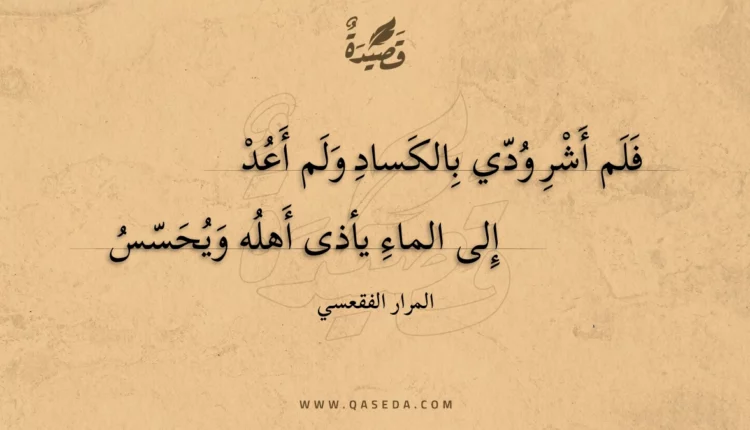 قَصِيْدَةٌ
فَلَم أَشْرِ وُدّي بِالكَسادِ وَلَم أَعُدْ
إِلى الماءِ يأذى أَهلُه وَيُحَسّسُ
المرار الفقعسي
WWW.QASEDA.COM